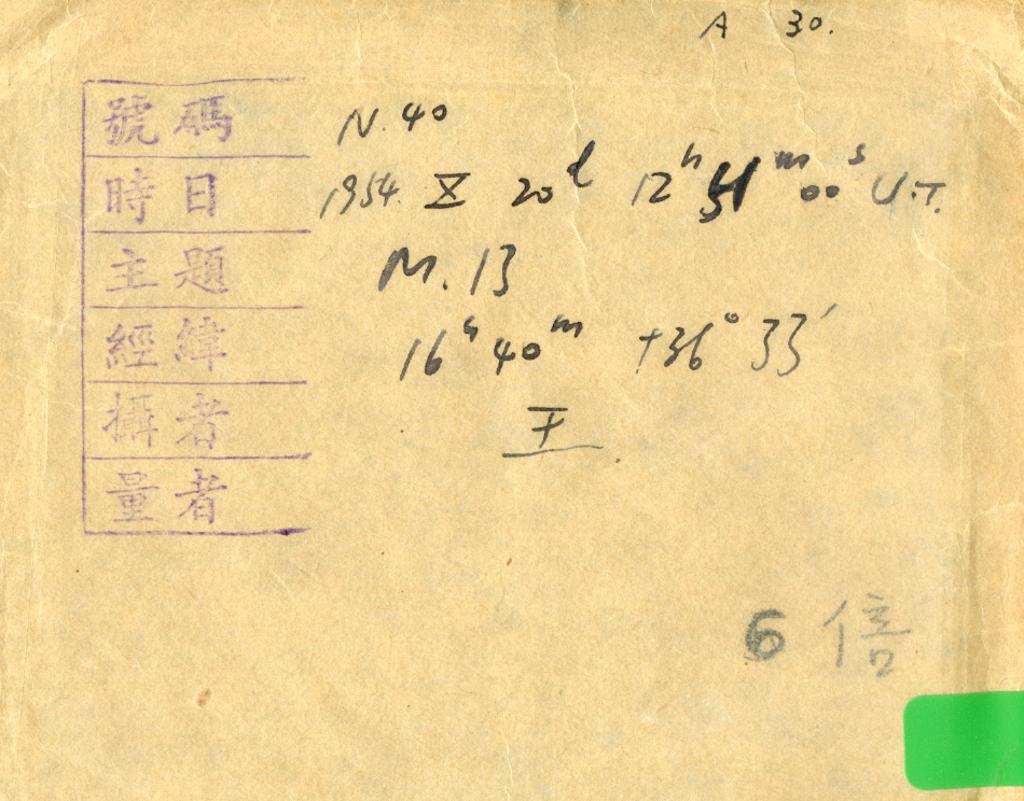 A 30.
號碼 N. 40
時日 1954. X 20d 12h 51m 00s U.T.
主題 M. 13
經緯 16h 40m +36° 33′
攝者 王
量者
6 倍